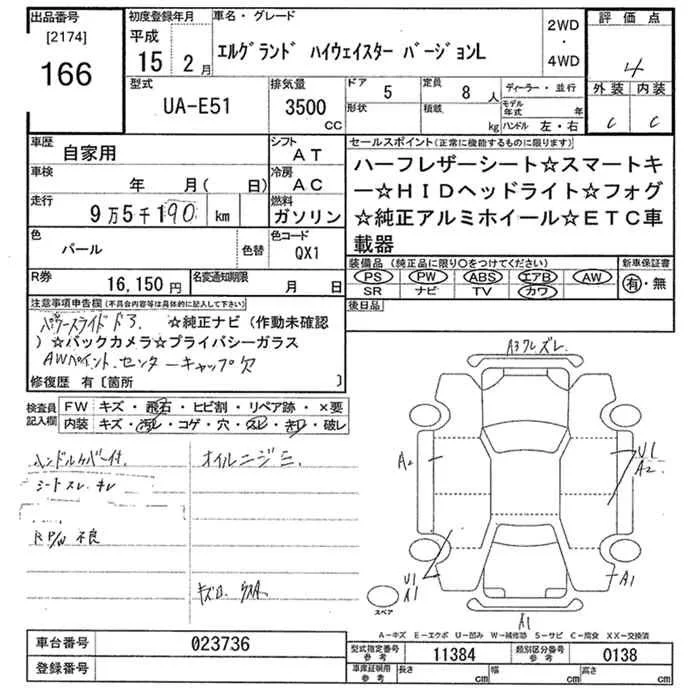 出品番号
[2174]
166
初度登録年月
平成
15 2 月
車名・グレード
エルグランド ハイウェイスター バージョンL
2WD
・
4WD
評価点
4
外装 内装
C C
型式
UA-E51
排気量
3500
CC
ドア 5
形状
定員 8 人
積載 kg
ディーラー・並行
モデル年式 年
ハンドル 左・右
車歴
自家用
シフト
AT
車検
年 月( 日)
冷房
AC
走行
9万5千190 km
燃料
ガソリン
色
パール
色替
色コード
QX1
R券
16,150円
名変通知期限
月 日
セールスポイント(正常に機能するものに限ります)
ハーフレザーシート☆スマートキ
ー☆HIDヘッドライト☆フォグ
☆純正アルミホイール☆ETC車
載器
装備品(純正品に限り○をつけてください)
PS PW ABS エアB AW
SR ナビ TV カワ
新車保証書
有・無
後日品
注意事項申告欄(不具合内容等は具体的に記入して下さい)
パワースライドドア ☆純正ナビ(作動未確認
)☆バックカメラ☆プライバシーガラス
AWペイント、センターキャップ欠
修復歴 有〔箇所 〕
検査員
記入欄
FW キズ・飛石・ヒビ割・リペア跡・×要
内装 キズ・汚レ・コゲ・穴・スレ・キワ・破レ
ハンドルカバー付
シートスレ、キレ
R P/W 不良
オイルニジミ
A3 ワレ ズレ
A2
U1
A2
U1
A1
A1
A1
スペア
A-キズ E-エクボ U-凹み W-補修跡 S-サビ C-腐食 XX-交換済
車台番号
023736
登録番号
型式指定番号
参考
11384
類別区分番号
参考
0138
車庫証明用
参考
長さ cm
幅 cm
高さ cm